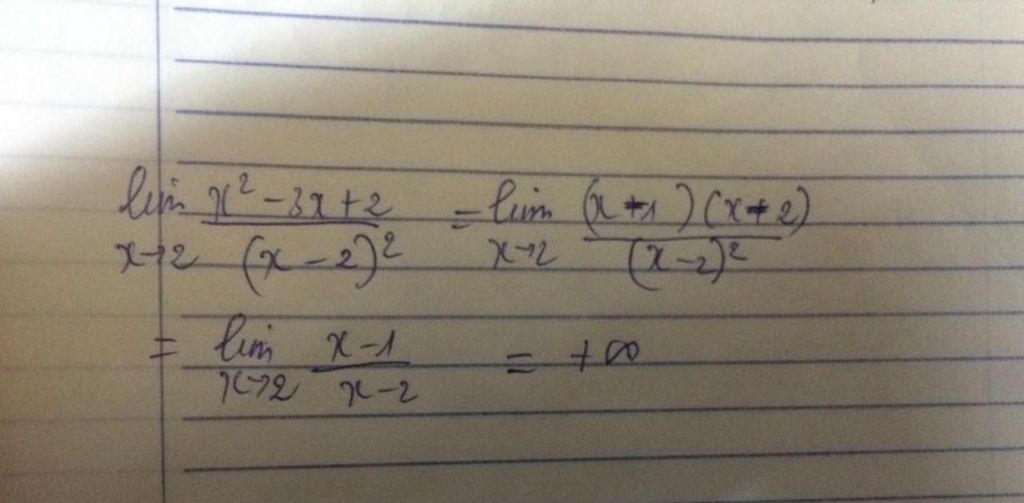 lim x→2 (x² - 3x + 2)/(x - 2)² = lim x→2 (x - 1)(x - 2)/(x - 2)²
= lim x→2 (x - 1)/(x - 2) = +∞